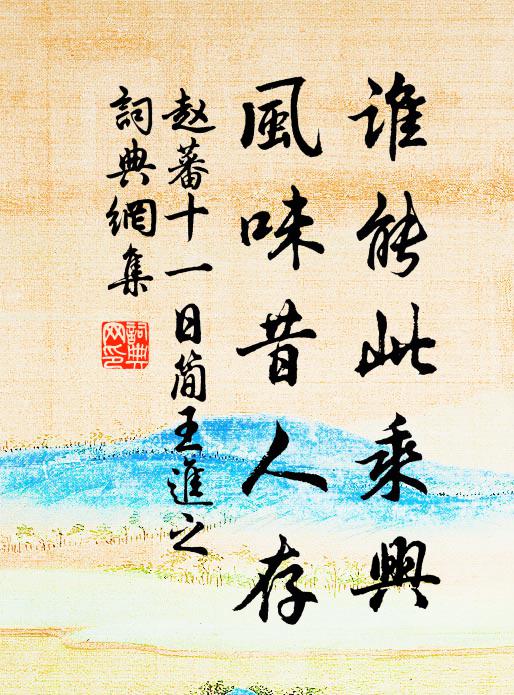 誰能此乘興
風味昔人存
赵蕃十一日簡王進之
詞典網集
詞典網印